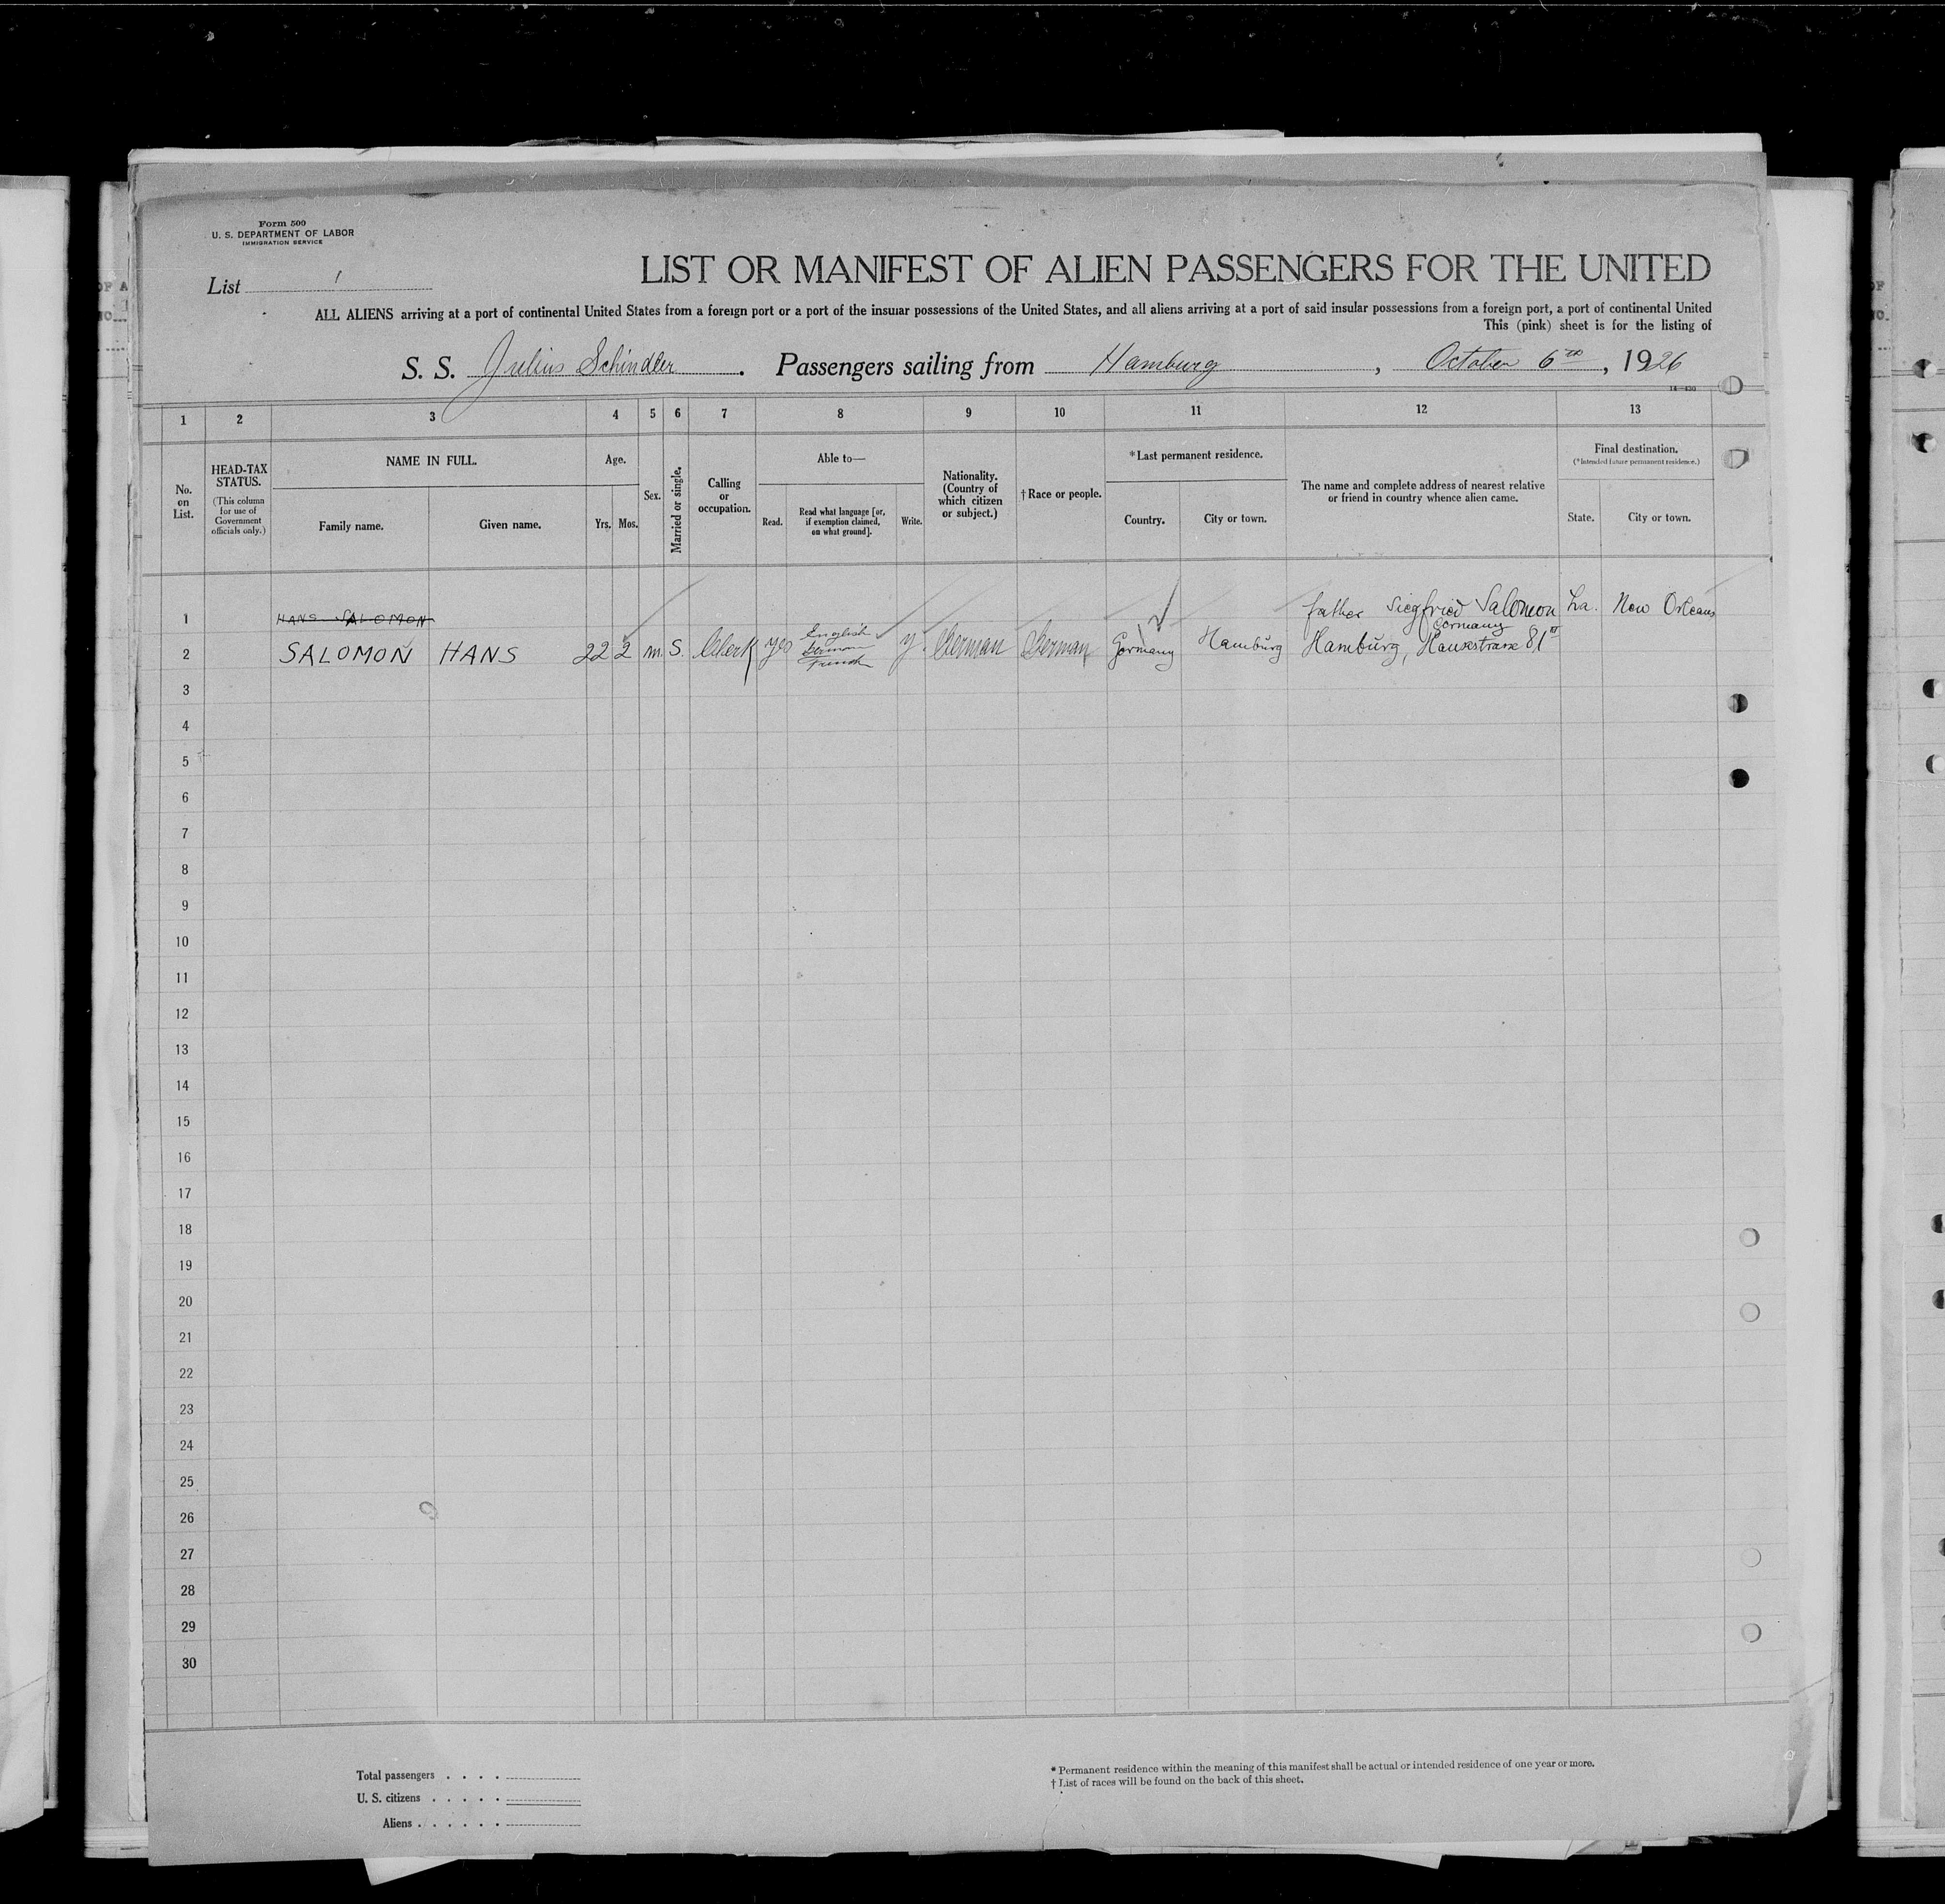 Form 500
U. S. DEPARTMENT OF LABOR
IMMIGRATION SERVICE
List 1
LIST OR MANIFEST OF ALIEN PASSENGERS FOR THE UNITED
ALL ALIENS arriving at a port of continental United States from a foreign port or a port of the insular possessions of the United States, and all aliens arriving at a port of said insular possessions from a foreign port, a port of continental United
This (pink) sheet is for the listing of
S. S. Julius Schindler. Passengers sailing from Hamburg, October 6th, 1926
1 2 3 4 5 6 7 8 9 10 11 12 13
No. on List.
HEAD-TAX STATUS.
(This column for use of Government officials only.)
NAME IN FULL.
Family name. Given name.
Age.
Yrs. Mos.
Sex.
Married or single.
Calling or occupation.
Able to—
Read. Read what language [or, if exemption claimed, on what ground]. Write.
Nationality. (Country of which citizen or subject.)
† Race or people.
* Last permanent residence.
Country. City or town.
The name and complete address of nearest relative or friend in country whence alien came.
Final destination.
(* Intended future permanent residence.)
State. City or town.
1 HANS SALOMON father Siegfried Salomon La. New Orleans
Germany
2 SALOMON HANS 22 2 m. S. Clerk yes English German French y. German German Germany Hamburg Hamburg, 81
3
4
5
6
7
8
9
10
11
12
13
14
15
16
17
18
19
20
21
22
23
24
25
26
27
28
29
30
Total passengers
U. S. citizens
Aliens
* Permanent residence within the meaning of this manifest shall be actual or intended residence of one year or more.
† List of races will be found on the back of this sheet.